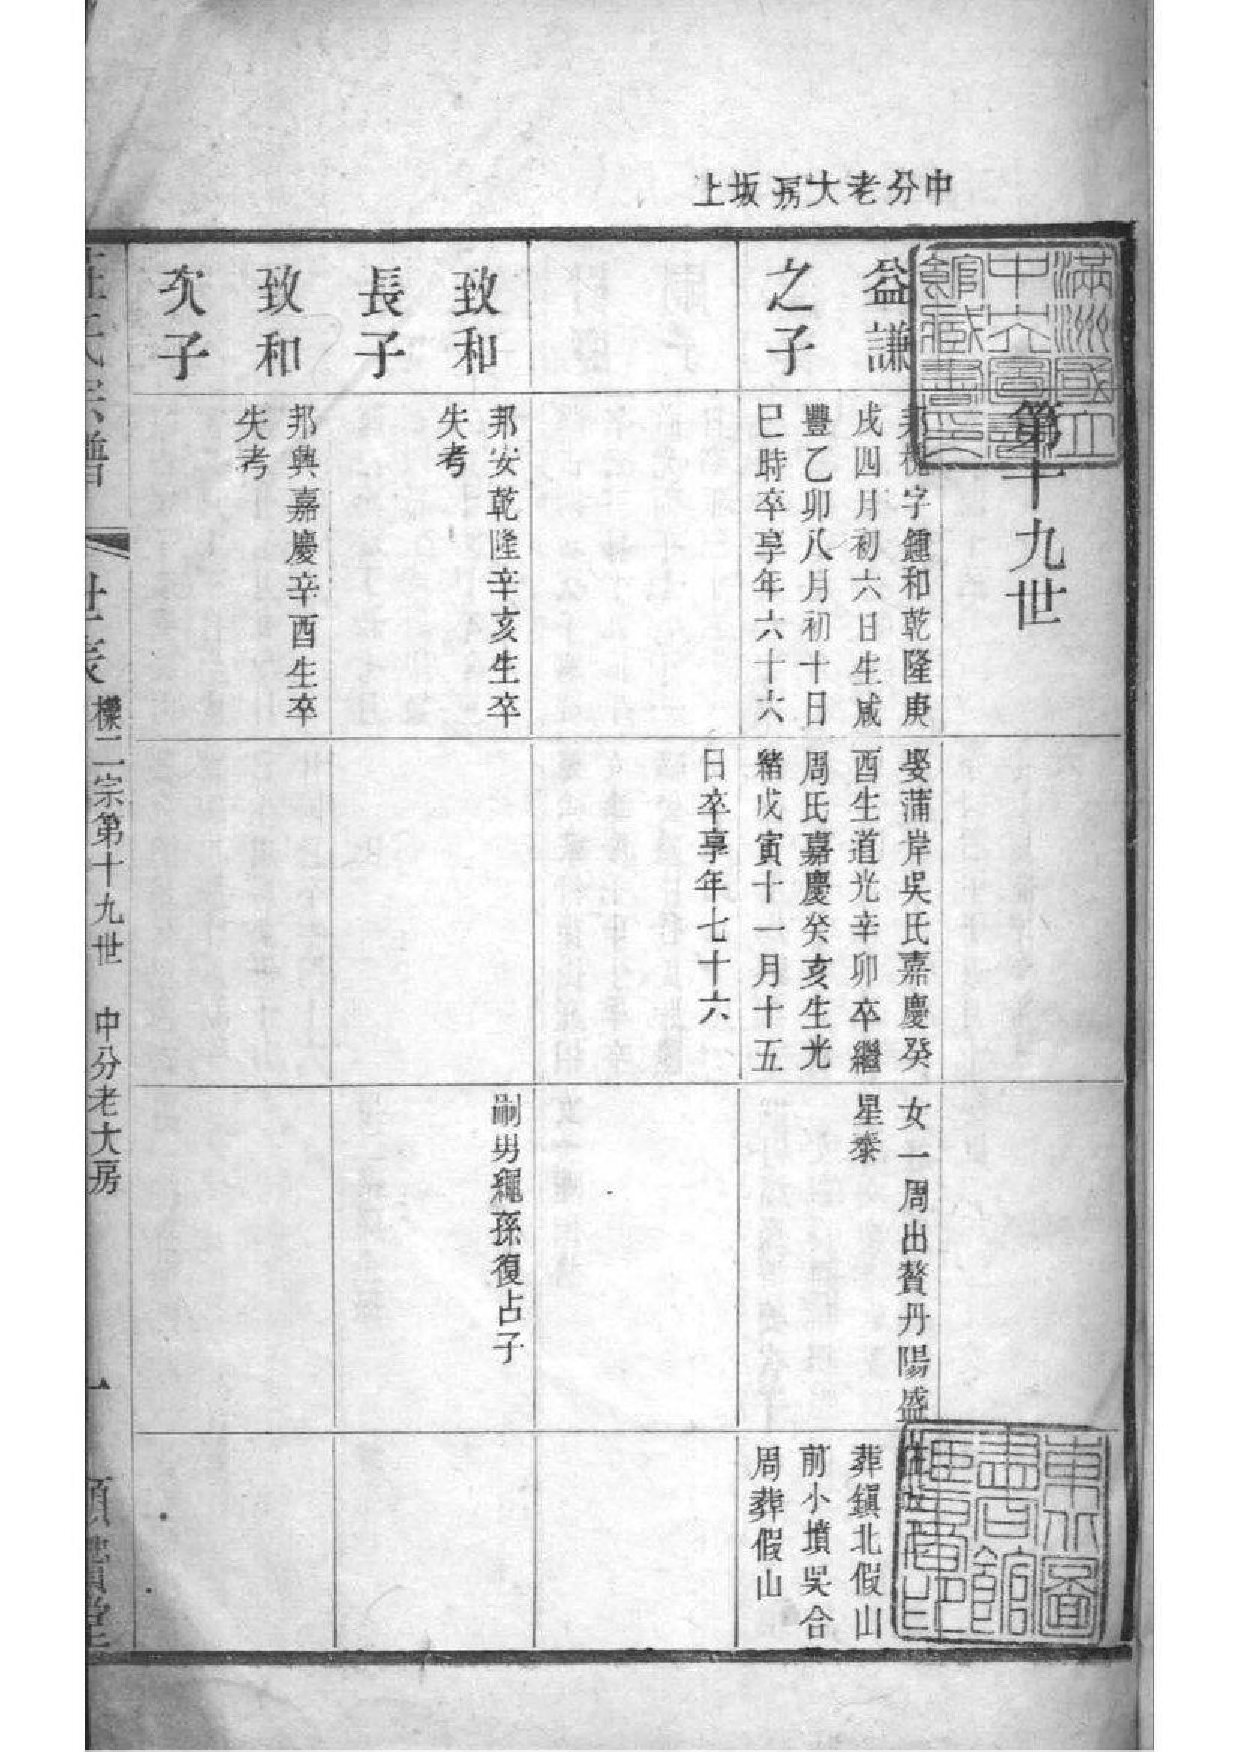 中分老大房坂上
第十九世
益謙
之子
邦桃字鍾和乾隆庚
戌四月初六日生咸
豐乙卯八月初十日
巳時卒享年六十六
娶蒲岸吳氏嘉慶癸
酉生道光辛卯卒繼
周氏嘉慶癸亥生光
緒戊寅十一月十五
日卒享年七十六
女一周出贅丹陽盛
星泰
葬鎮北假山
前小墳吳合
周葬假山
致和
長子
邦安乾隆辛亥生卒
失考
嗣男繩孫復占子
致和
次子
邦興嘉慶辛酉生卒
失考
汪氏宗譜
世表
櫟二宗第十九世 中分老大房
一
滿洲國立
中央圖書
館藏書印
東北圖
書館